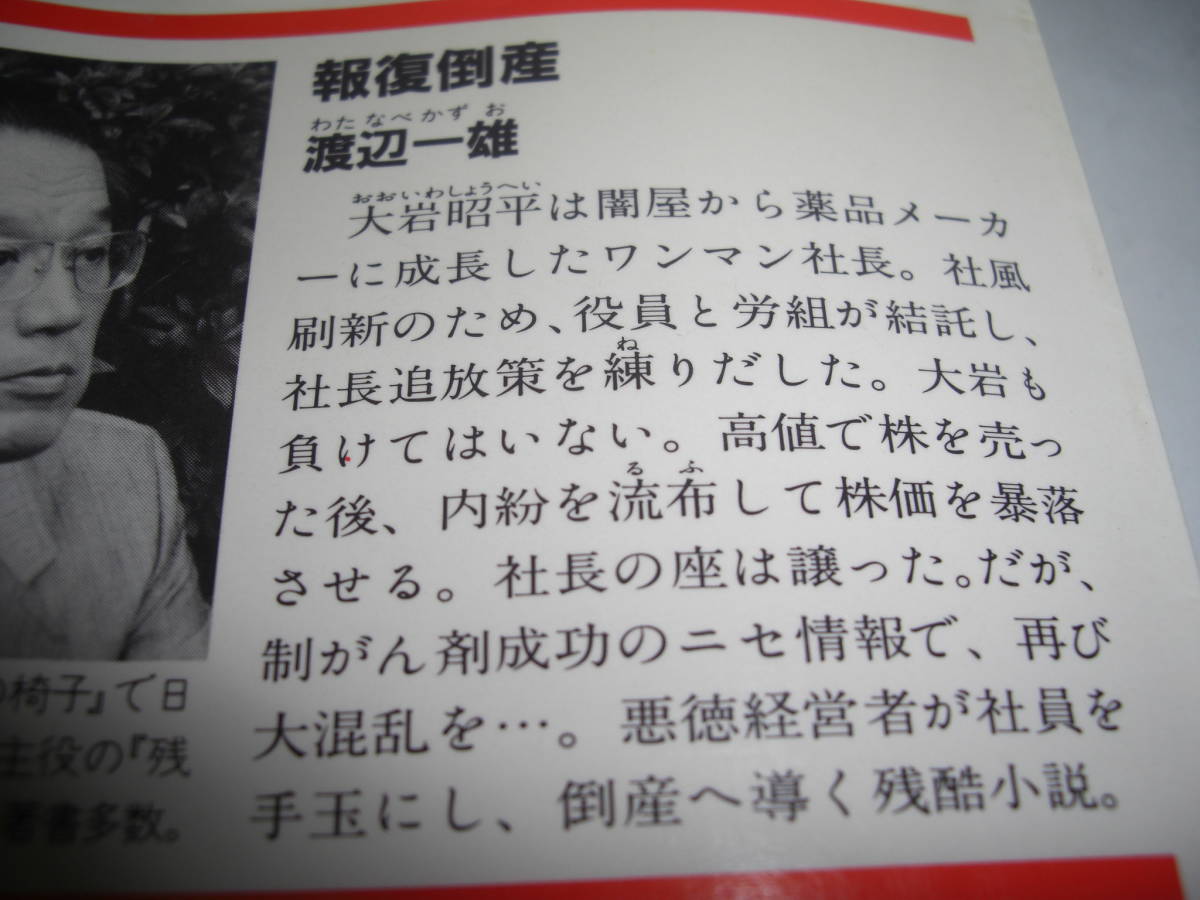 報復倒産
わたなべかずお
渡辺一雄
おおいわしょうへい
大岩昭平は闇屋から薬品メーカ
ーに成長したワンマン社長。社風
刷新のため、役員と労組が結託し、
ね
社長追放策を練りだした。大岩も
負けてはいない。高値で株を売っ
るふ
た後、内紛を流布して株価を暴落
させる。社長の座は譲った。だが、
制がん剤成功のニセ情報で、再び
大混乱を…。悪徳経営者が社員を
手玉にし、倒産へ導く残酷小説。
椅子』で日
主役の『残
著書多数。